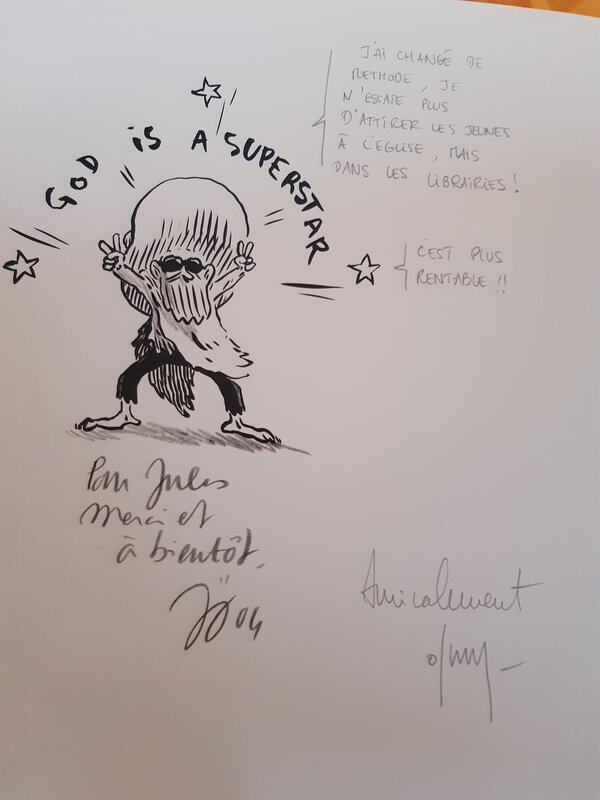 GOD IS A SUPERSTAR
J'AI CHANGÉ DE
METHODE, JE
N'ESSAIE PLUS
D'ATTIRER LES JEUNES
À L'EGLISE, MAIS
DANS LES LIBRAIRIES !
C'EST PLUS
RENTABLE !!
Pour Jules
Merci et
à bientôt.
04
Amicalement